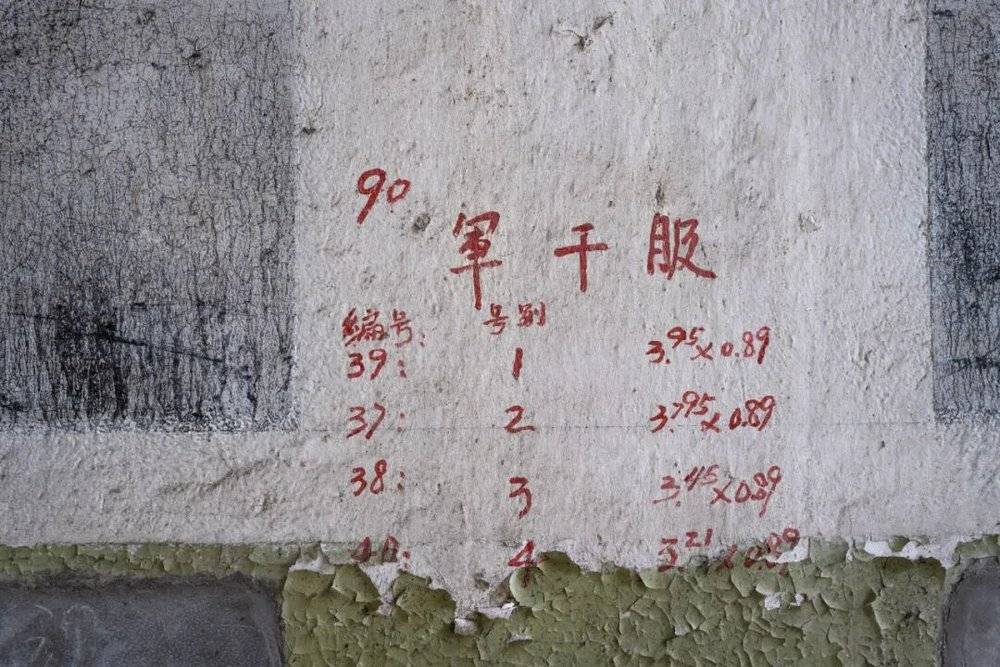 90
軍干服
编号: 号别
39: 1 3.95×0.89
37: 2 3.795×0.89
38: 3 3.45×0.89
40: 4 3.21×0.89